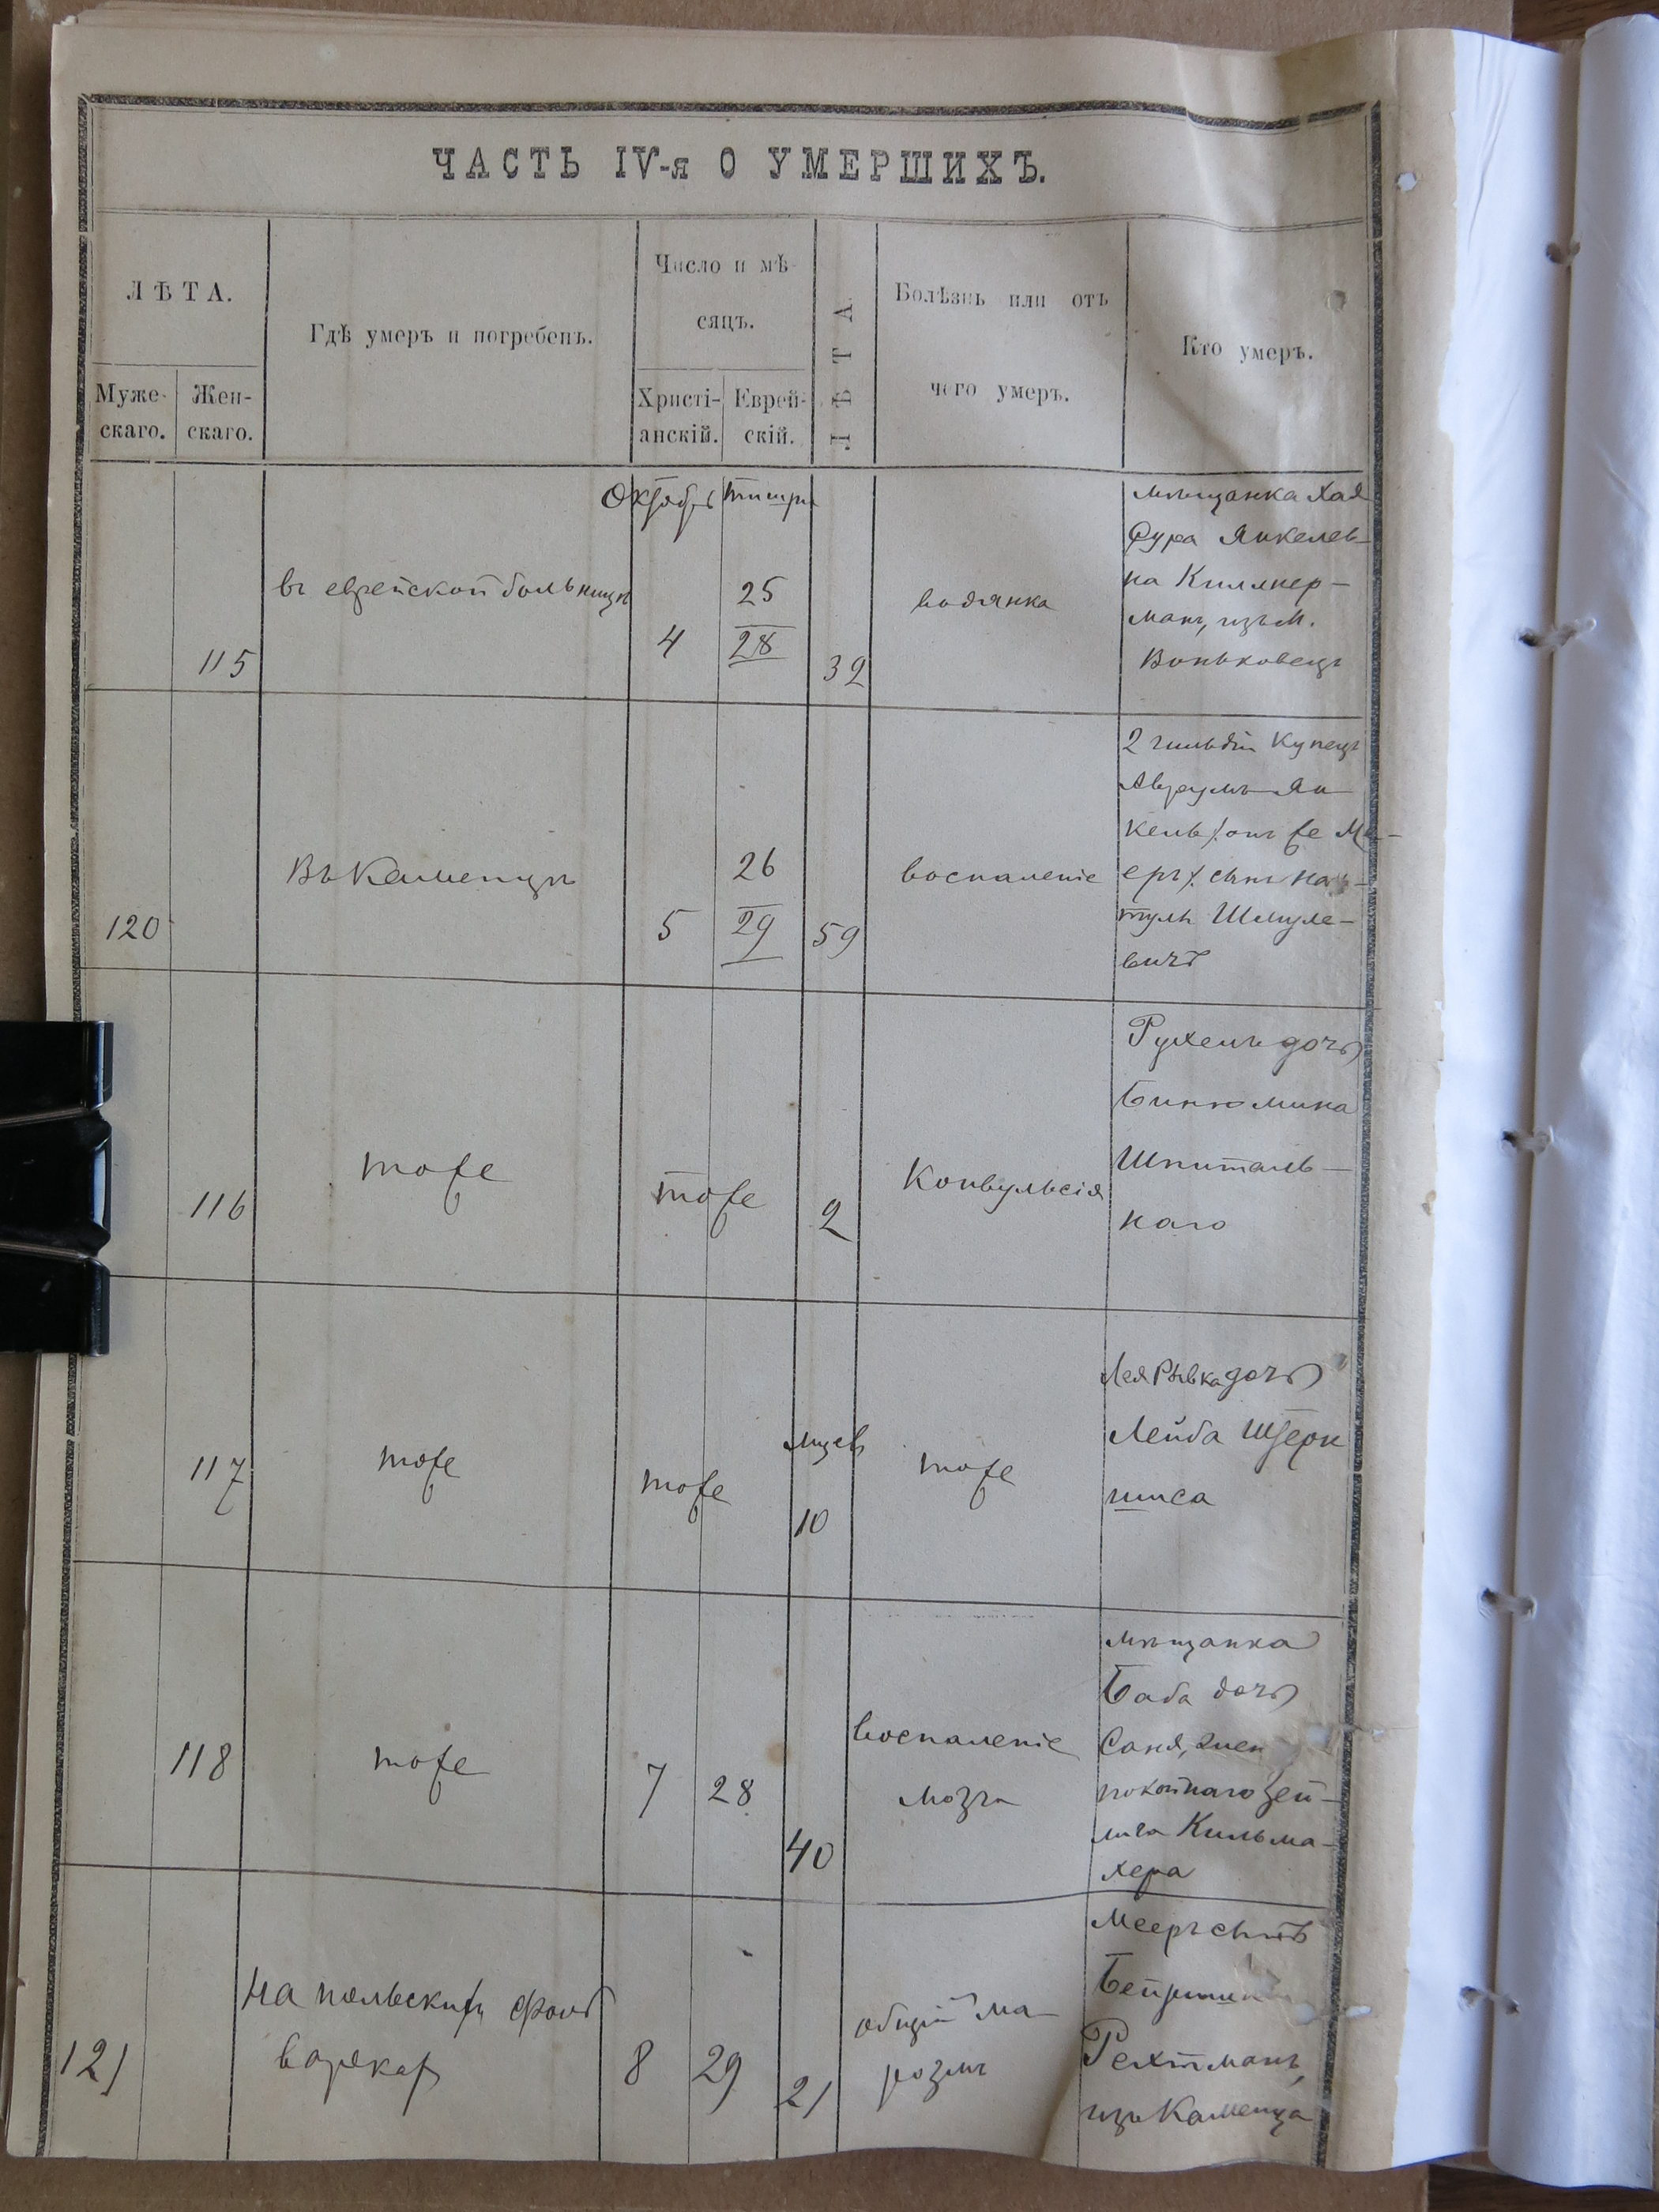 ЧАСТЬ IV-я О УМЕРШИХЪ.
ЛѢТА.
Муже-
скаго.
Жен-
скаго.
Гдѣ умеръ и погребенъ.
Число и мѣ-
сяцъ.
Христі-
анскій.
Еврей-
скій.
ЛѢТА
Болѣзнь или отъ
чего умеръ.
Кто умеръ.
Октябрь Тишри
115
въ еврейской больницѣ
4
25
28
32
водянка
мѣщанка Хая
Сура Янкелев-
на Килимер-
манъ, изъ м.
Воньковецъ
120
Въ Каменцѣ
5
26
29
59
воспаленіе
2 гильдіи Купецъ
Аврумъ Ян-
кель /:онъ же Ме-
еръ/: сынъ На-
туль Шмуле-
вичъ
116
тоже
тоже
2
Конвульсія
Рухель дочь
Бинюмина
Шпиталь-
наго
117
тоже
тоже
мцев
10
тоже
Лея Рывка дочь
Лейба Штерн
шиса
118
тоже
7
28
40
воспаленіе
мозга
мѣщанка
Баба дочь
Саня,
покойнаго Зей-
лига Кильма-
хера
121
На польскихъ фоль
варкахъ
8
29
21
общій ма-
розмъ
Мееръ сынъ
Рехтманъ,
изъ Каменца